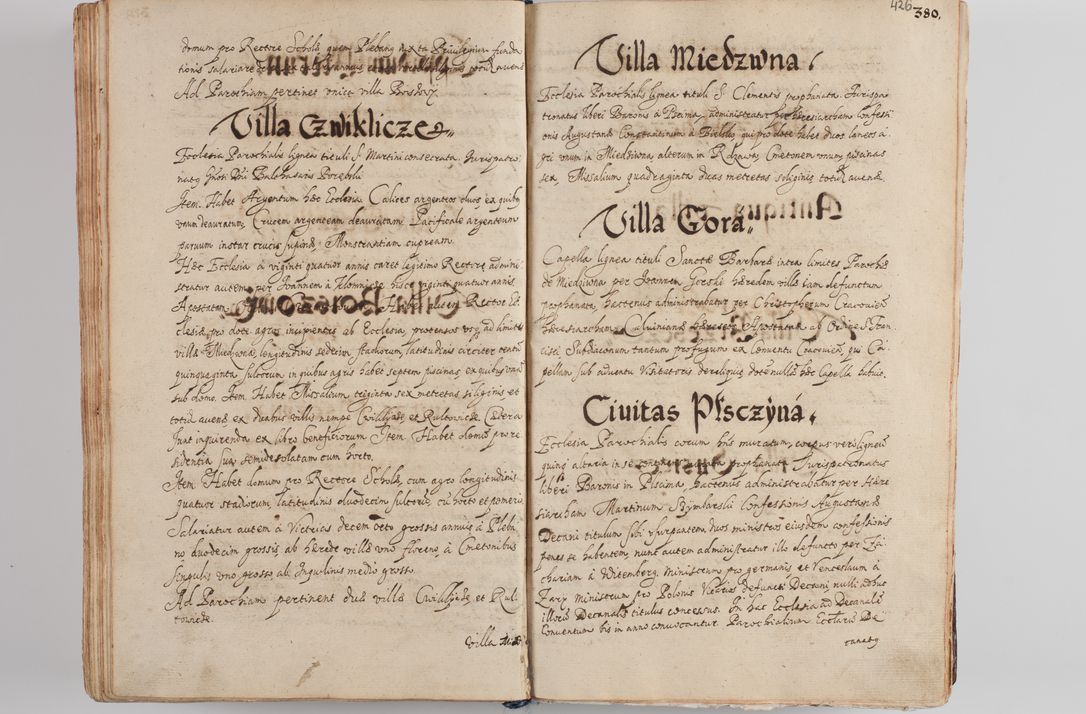 domum pro Rectore Scholæ, quem Plebang iuxta Priuilegium funda
tionis salariare
Ad Parochiam pertinet unica villa
Villa Cźwiklicze
Ecclesia Parochialis lignea tituli S. Martini consecrata. Iurispatro
natq Gnosi Dni Balthasaris Porębski
Item. Habet Argentum hæc Ecclesia Calices argenteos duos ex quibq
vnum deauratum, Crucem argenteam deauratam Pacificale argenteum
paruum instar crucis supinæ, Monstrantiam cupream.
Hæc Ecclesia à viginti quatuor annis caret legitimo Rectore admini
stratur autem per Ioannem à Klomnice hisce viginti quatuor annis
Apostatam Habet Rector Ec
clesiæ pro dote agros incipientes ab Ecclesia, protensos vsq ad limites
villæ Miedzwna, longitudinis sedecim stadiorum, latitudinis circiter centũ
quinquaginta sulcorum in quibus agris habet septem piscinas, ex quibus vna
sub domo. Item Habet Missalium triginta sex metretas siliginis et
totid. auenæ ex duabus villis nempe Cwiklycze et Rultowicze. Cætera
sunt inquirenda ex libro beneficiorum Item Habet domũ pro re
sidentia sua semidesolatam cum horto.
Item Habet domum pro Rectore Scholæ, cum agro longitudinis
quatuor stadiorum, latitudinis duodecim sulcorũ, cũ horto et pomerio
Salariatur autem à Vitricis decem octo grossis annuis à Pleba
no duodecim grossis, ab hærede villæ vno floreno, à Cmetonibus
singulis vno grosso, ab Inquilinis medio grosso.
Ad Parochiam pertinent duæ villæ Cwiklycze et Rul
towicze.
Villa Mied
426
380.
Villa Miedzwna
Ecclesia Parochialis lignea tituli S. Clementis prophanata Iurispa
tronatus liberi Baronis à Pscima, administratur per hæresiarcham confessi
onis Augustanæ Constantinum à Bielsko, qui pro dote habet duos laneos a
gri vnum in Miedzwna, alterum in Cmetonem vnum, piscinas
sex, Missalium quadraginta duas metretas siliginis totid. auenæ
Villa Gora
Capella lignea tituli Sanctæ Barbaræ intra limites Parochiæ
de Miedzwna per Ioannem Gorski hæredem villæ iam defunctum
prophanata, hactenus administrabatur per Christopherum Cracouien
hæresiarcham, Caluinianæ hæreseos Apostatam ab Ordine S. Fran
cisci Subdiaconum tantum profugum ex Conuentu Cracouien, qui Ca
pellam sub aduentu Visitatoris dereliquit, dotẽ nullã hæc Capella habuit.
Ciuitas Pſsczyná
Ecclesia Parochialis corum hus muratum, corpus vero ligneũ
quinq altaria in se prophanata Iurispatronatus
liberi Baronis in Pscima, hactenus administrabatur per Hære
siarcham Martinum Szymlarski Confessionis Augustanæ
Decani titulum sibi vsurpantem, duos ministros eiusdem confessionis
penes se habentem, nunc autem administratur illo defuncto per Za
chariam à Witemberg ministrum pro germanis et Venceslaum à
Zary Ministrum pro Polonis Vicarios defuncti Decani, nulli adhuc
illorũ Decanalis titulus concessus. In hac Ecclesia ad Decanalẽ
Conuentum bis in anno conuocantur Parochialium Ecclarũ De
canatq